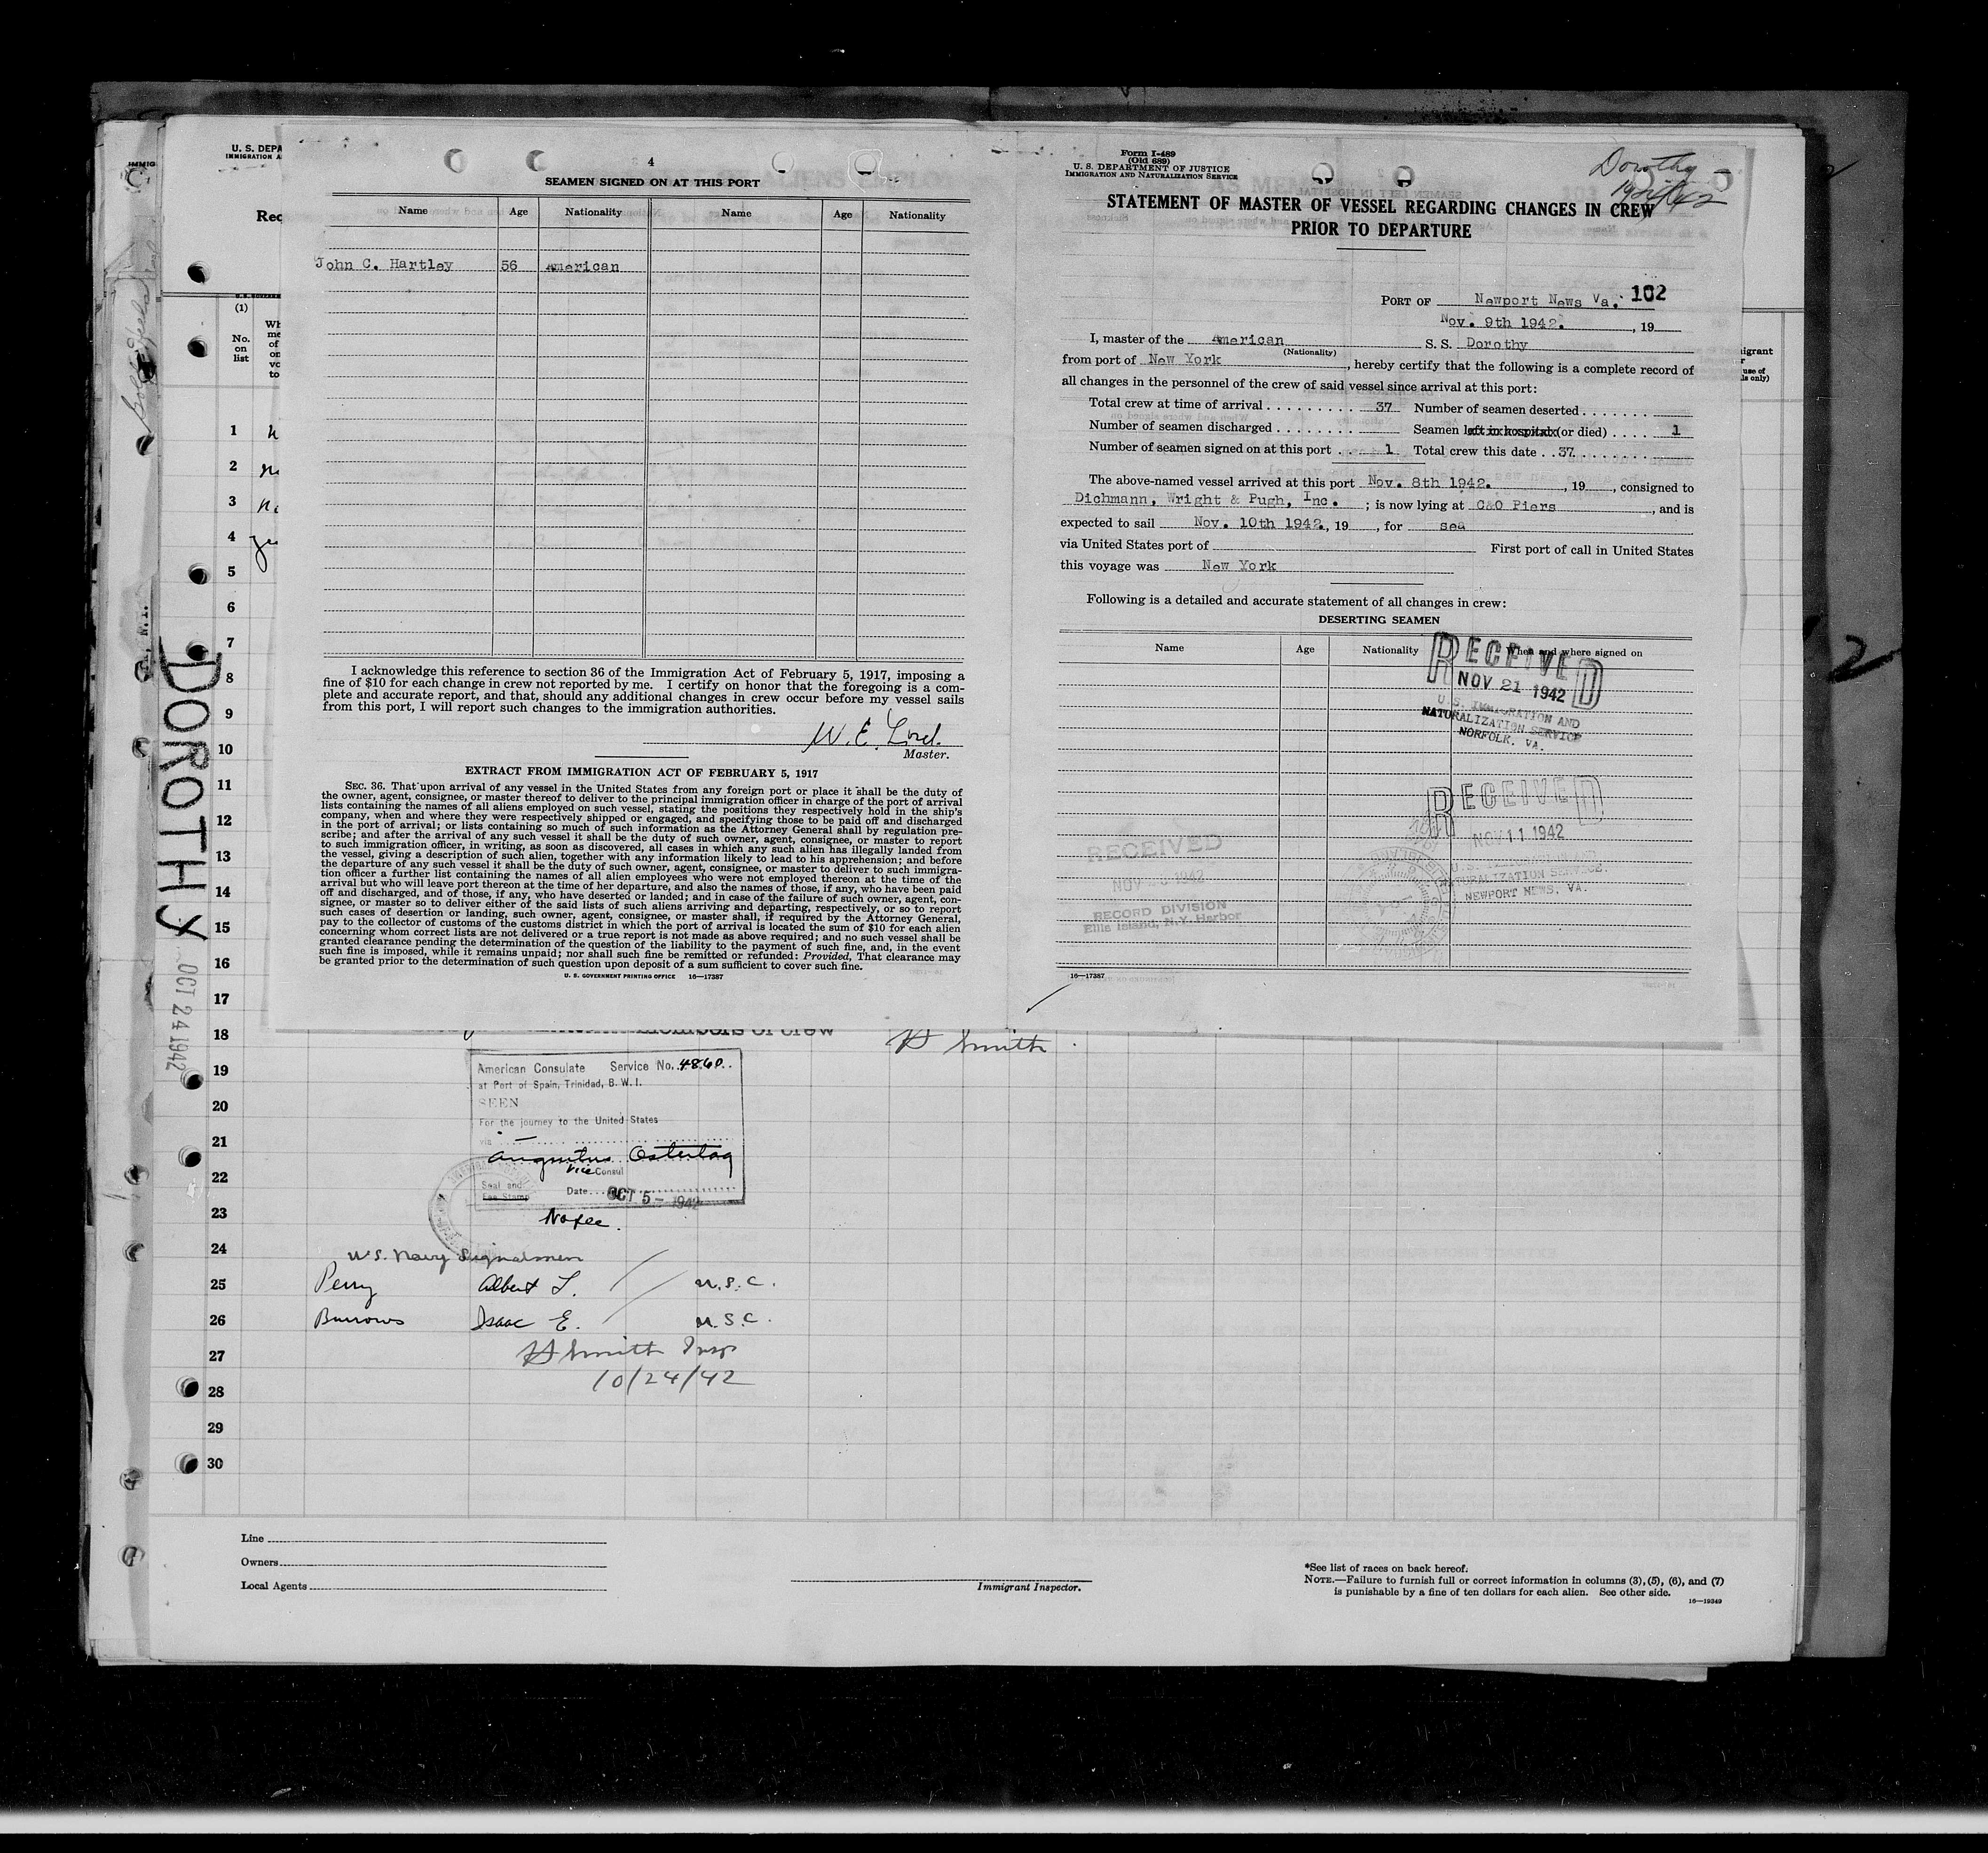 U. S. DEPA
IMMIGRATION A
Rec
(1)
No.
on
list
1
2
3
4
5
6
7
8
9
10
11
12
13
14
15
16
17
18
19
20
21
22
23
24
25
26
27
28
29
30
DOROTHY
OCT 24 1942
4
SEAMEN SIGNED ON AT THIS PORT
Name Age Nationality Name Age Nationality
John C. Hartley 56 American
I acknowledge this reference to section 36 of the Immigration Act of February 5, 1917, imposing a
fine of $10 for each change in crew not reported by me. I certify on honor that the foregoing is a com-
plete and accurate report, and that, should any additional changes in crew occur before my vessel sails
from this port, I will report such changes to the immigration authorities.
W. E. Lord.
Master.
EXTRACT FROM IMMIGRATION ACT OF FEBRUARY 5, 1917
SEC. 36. That upon arrival of any vessel in the United States from any foreign port or place it shall be the duty of
the owner, agent, consignee, or master thereof to deliver to the principal immigration officer in charge of the port of arrival
lists containing the names of all aliens employed on such vessel, stating the positions they respectively hold in the ship's
company, when and where they were respectively shipped or engaged, and specifying those to be paid off and discharged
in the port of arrival; or lists containing so much of such information as the Attorney General shall by regulation pre-
scribe; and after the arrival of any such vessel it shall be the duty of such owner, agent, consignee, or master to report
to such immigration officer, in writing, as soon as discovered, all cases in which any such alien has illegally landed from
the vessel, giving a description of such alien, together with any information likely to lead to his apprehension; and before
the departure of any such vessel it shall be the duty of such owner, agent, consignee, or master to deliver to such immigra-
tion officer a further list containing the names of all alien employees who were not employed thereon at the time of the
arrival but who will leave port thereon at the time of her departure, and also the names of those, if any, who have been paid
off and discharged, and of those, if any, who have deserted or landed; and in case of the failure of such owner, agent, con-
signee, or master so to deliver either of the said lists of such aliens arriving and departing, respectively, or so to report
such cases of desertion or landing, such owner, agent, consignee, or master shall, if required by the Attorney General,
pay to the collector of customs of the customs district in which the port of arrival is located the sum of $10 for each alien
concerning whom correct lists are not delivered or a true report is not made as above required; and no such vessel shall be
granted clearance pending the determination of the question of the liability to the payment of such fine, and, in the event
such fine is imposed, while it remains unpaid; nor shall such fine be remitted or refunded: Provided, That clearance may
be granted prior to the determination of such question upon deposit of a sum sufficient to cover such fine.
U. S. GOVERNMENT PRINTING OFFICE 16—17387
Form I-489
(Old 689)
U. S. DEPARTMENT OF JUSTICE
IMMIGRATION AND NATURALIZATION SERVICE
Dorothy
STATEMENT OF MASTER OF VESSEL REGARDING CHANGES IN CREW
PRIOR TO DEPARTURE
PORT OF Newport News Va. 102
Nov. 9th 1942. , 19
I, master of the American S. S. Dorothy
(Nationality)
from port of New York , hereby certify that the following is a complete record of
all changes in the personnel of the crew of said vessel since arrival at this port:
Total crew at time of arrival 37 Number of seamen deserted
Number of seamen discharged Seamen left in hospital (or died) 1
Number of seamen signed on at this port 1 Total crew this date 37
The above-named vessel arrived at this port Nov. 8th 1942. , 19 , consigned to
Dichmann, Wright & Pugh, Inc. ; is now lying at C&O Piers , and is
expected to sail Nov. 10th 1942. , 19 , for sea
via United States port of First port of call in United States
this voyage was New York
Following is a detailed and accurate statement of all changes in crew:
DESERTING SEAMEN
Name Age Nationality When and where signed on
RECEIVED
NOV 21 1942
U.S. IMMIGRATION AND
NATURALIZATION SERVICE
NORFOLK, VA.
RECEIVED
NOV 11 1942
NATURALIZATION SERVICE.
NEWPORT NEWS, VA.
RECEIVED
1942
RECORD DIVISION
Ellis Island, N.Y. Harbor
16—17387
members of crew
H Smith
American Consulate Service No. 4860
at Port of Spain, Trinidad, B. W. I.
SEEN
For the journey to the United States
via
Augustus Ostertag
Vice Consul
Seal and
Fee Stamp
Date OCT 5 - 1942
No fee.
U.S. Navy Signalmen
Perry Albert L. U.S.C.
Burrows Isaac E. U.S.C.
H Smith Insp
10/24/42
Line
Owners
Local Agents
Immigrant Inspector.
*See list of races on back hereof.
NOTE.—Failure to furnish full or correct information in columns (3), (5), (6), and (7)
is punishable by a fine of ten dollars for each alien. See other side.
16—19349